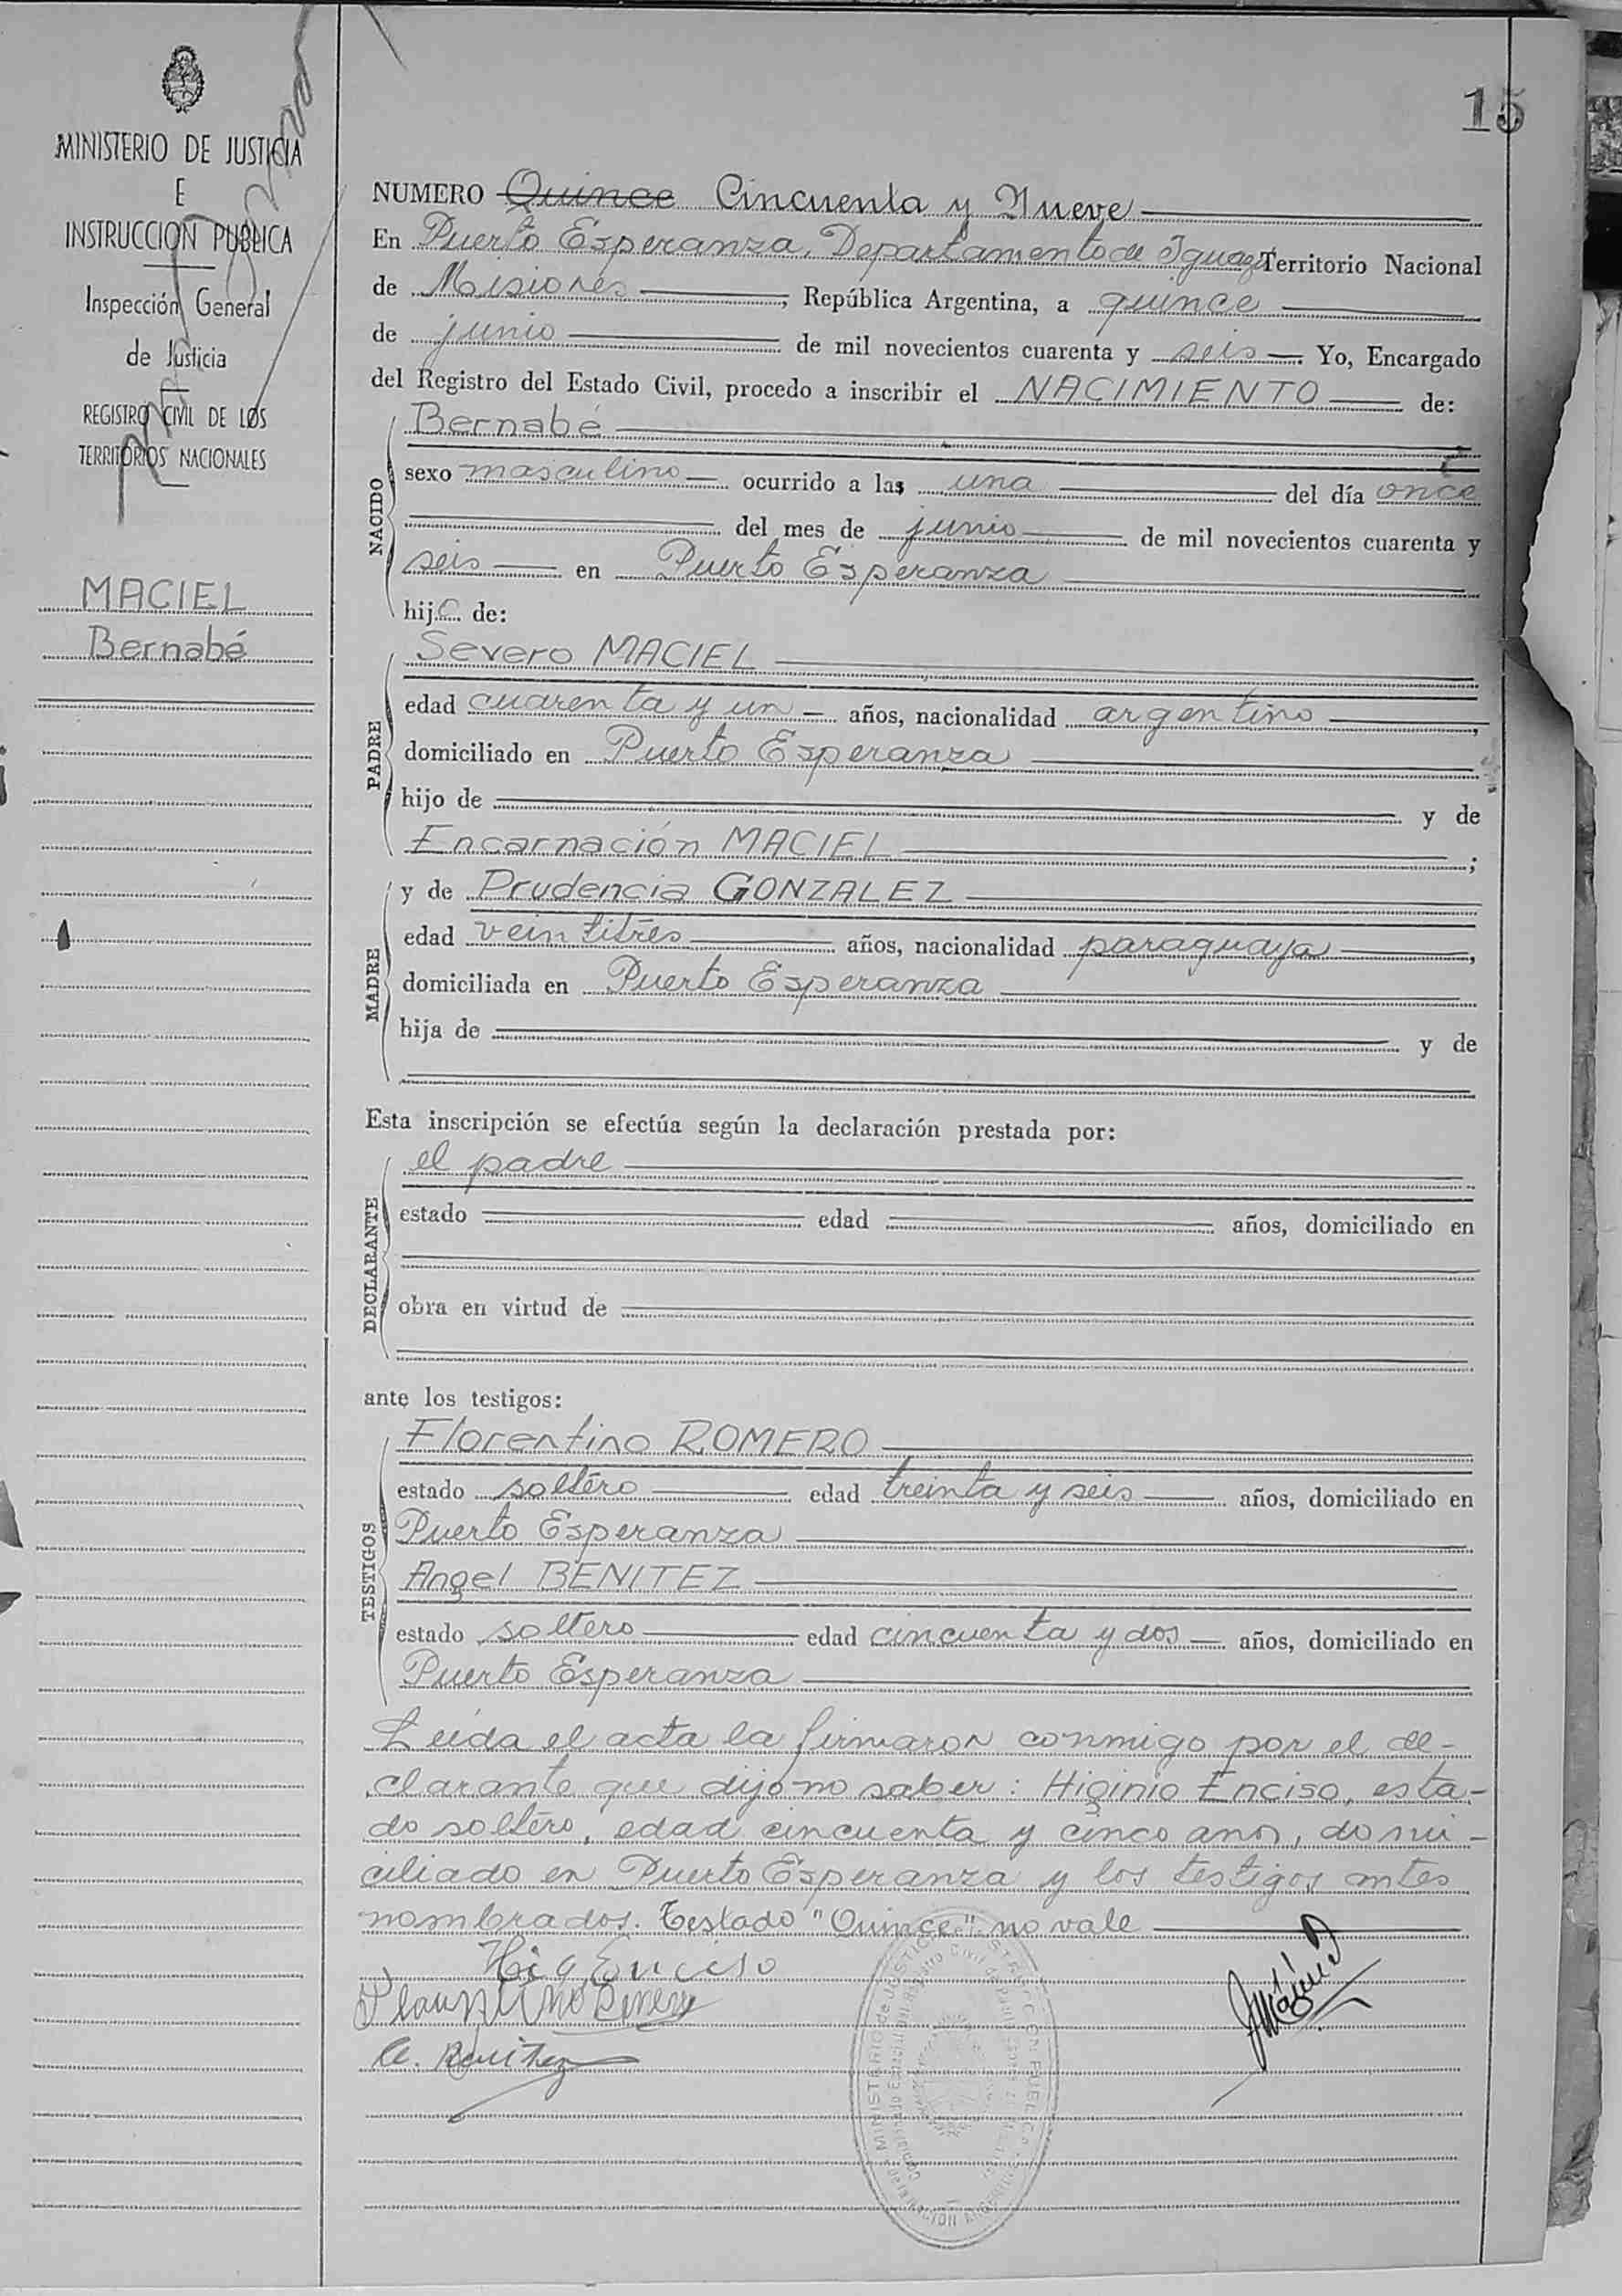 15
MINISTERIO DE JUSTICIA
E
INSTRUCCION PUBLICA
Inspección General
de Justicia
REGISTRO CIVIL DE LOS
TERRITORIOS NACIONALES
MACIEL
Bernabé
NUMERO Quince Cincuenta y Nueve
En Puerto Esperanza, Departamento de Iguazú Territorio Nacional
de Misiones, República Argentina, a quince
de junio de mil novecientos cuarenta y seis Yo, Encargado
del Registro del Estado Civil, procedo a inscribir el NACIMIENTO de:
NACIDO
Bernabé
sexo masculino ocurrido a las una del día once
del mes de junio de mil novecientos cuarenta y
seis en Puerto Esperanza
hijo de:
PADRE
Severo MACIEL
edad cuarenta y un años, nacionalidad argentino,
domiciliado en Puerto Esperanza
hijo de y de
Encarnación MACIEL;
MADRE
y de Prudencia GONZALEZ
edad veintitrés años, nacionalidad paraguaya,
domiciliada en Puerto Esperanza
hija de y de
Esta inscripción se efectúa según la declaración prestada por:
DECLARANTE
el padre
estado edad años, domiciliado en
obra en virtud de
ante los testigos:
TESTIGOS
Florentino ROMERO
estado soltero edad treinta y seis años, domiciliado en
Puerto Esperanza
Angel BENITEZ
estado soltero edad cincuenta y dos años, domiciliado en
Puerto Esperanza
Leída el acta la firmaron conmigo por el de-
clarante que dijo no saber: Higinio Enciso, esta-
do soltero, edad cincuenta y cinco años, domi-
ciliado en Puerto Esperanza y los testigos antes
nombrados. Testado "Quince" no vale
Hig Enciso
A. Benitez